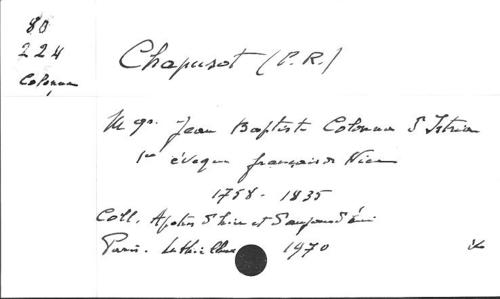 80
224
Colonna
Chapusot (P.R.)
Mgr. Jean Baptiste Colonna d'Istria
1er évêque français de Nice
1758 - 1835
Coll. Apôtres d'hier et
Paris. Lethielleux 1970